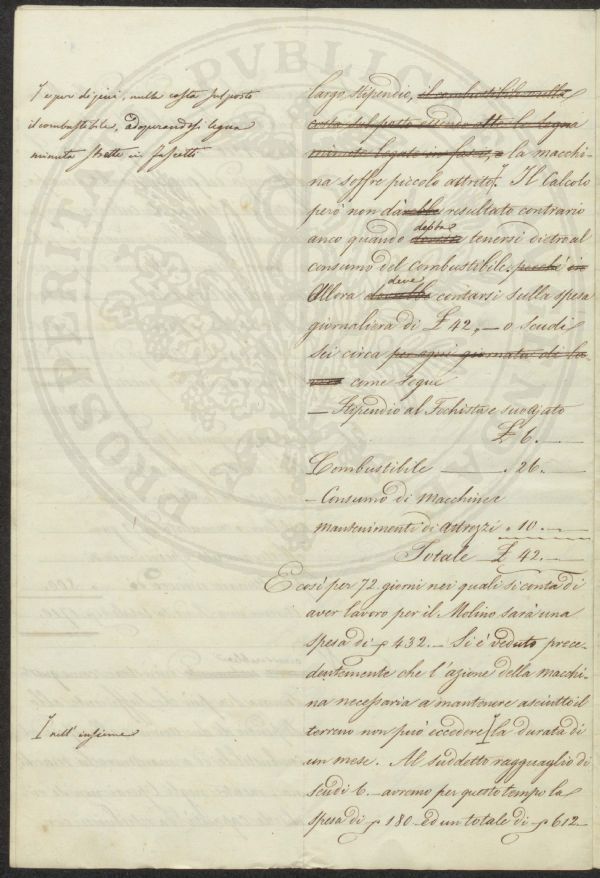 PVBLIC
PROSPERITA
e per di più, nella costa sul posto
il combustibile, adoperandosi legna
minuta stretta in fascetti
largo Stipendio, il combustibile nella
costa sul posto
minuta legata in fasci, e la macchi-
na soffre piccolo attrito. Il Calcolo
però non darebbe resultato contrario
anco quando debba tenersi dietro al
consumo del combustibile. perchè in
Allora deve contarsi sulla spesa
giornaliera di £ 42,— o Scudi
Sei circa per ogni giornata di la-
voro come segue
— Stipendio al Fochista e suo Ajuto
£ 6.—
Combustibile — " 26.—
— Consumo di macchine e
mantenimenti di attrezzi " 10.—
Totale £ 42.—
E così per 72 giorni nei quali si conta di
aver lavoro per il Molino sarà una
spesa di 432.— Si è veduto prece-
dentemente che l'azione della macchi-
na necessaria a mantenere asciutto il
terreno non può eccedere la durata di
nell' insieme
un mese. Al suddetto ragguaglio di
Scudi 6.— avremo per questo tempo la
spesa di 180 ed un totale di 612—